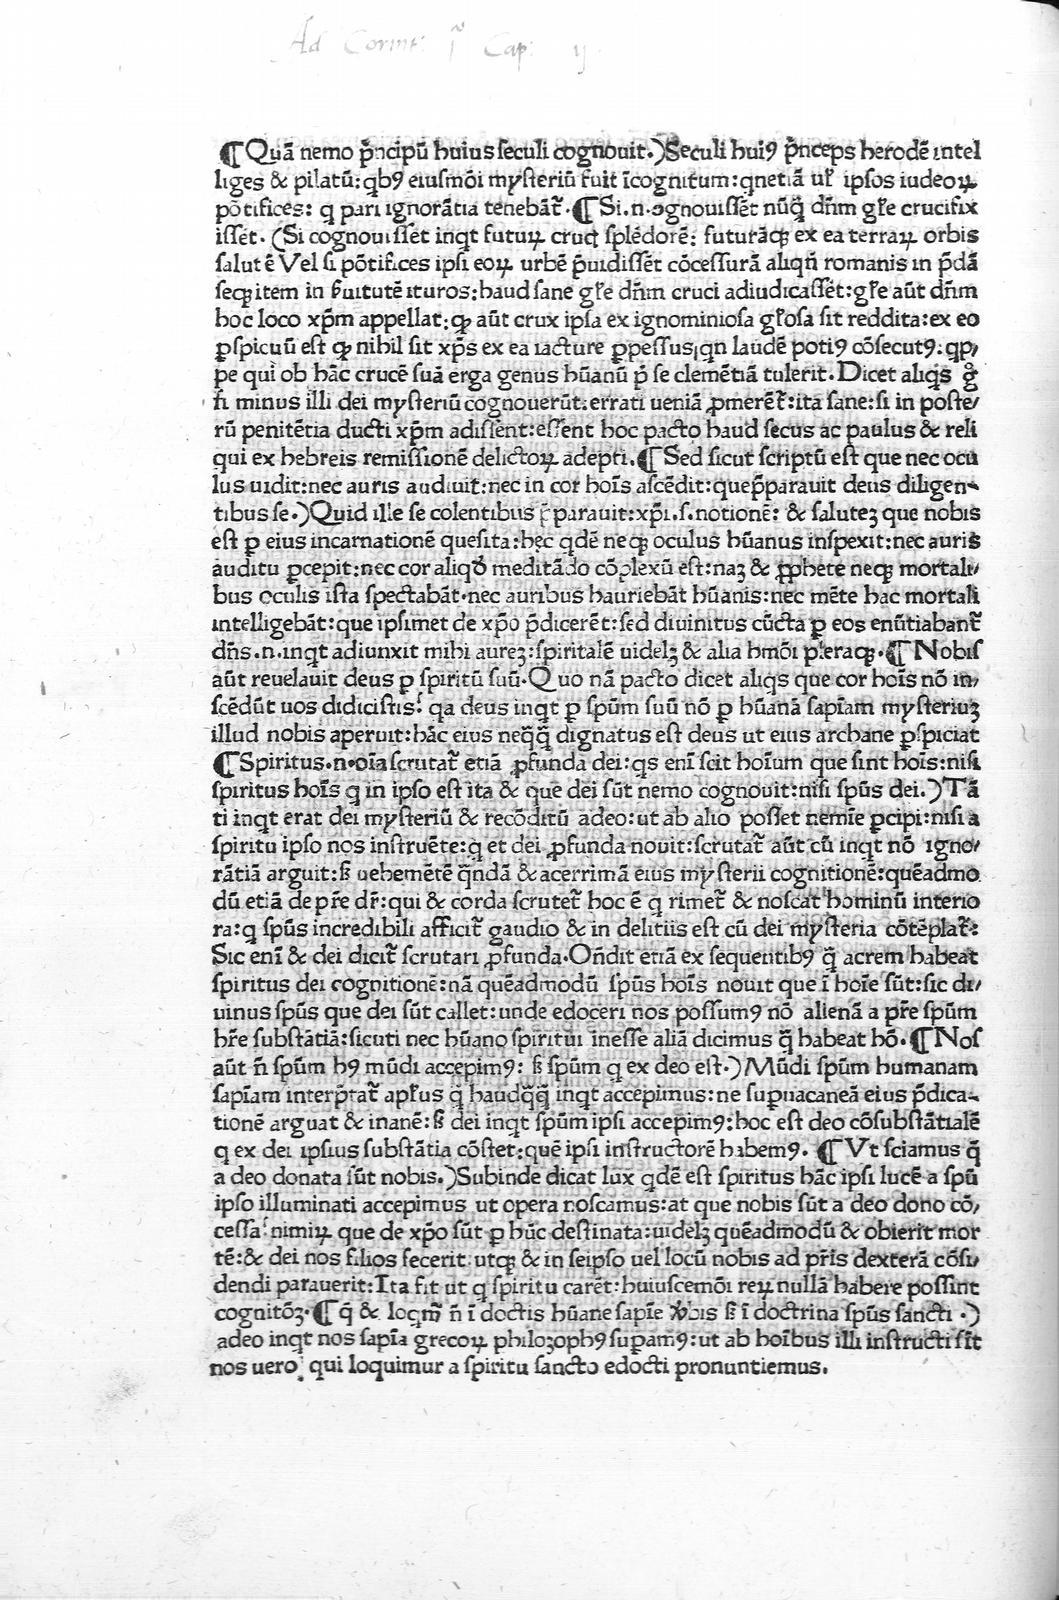 Ad Corint: j͂ Cap: ij
¶Quā nemo p̄ncipū huius ſeculi cognouit.)Seculi huiꝰ p̄nceps herodē intel
liges & pilatū:qbꝰ eiuſmōi myſteriū fuit īcognitum:qnetiā uł ipſos iudeoꝝ
pōtifices: q pari ignorātia tenebāt᷑.¶Si.n.ꝯgnouiſſēt nūq̄ dn̄m gl̄e crucifix
iſſēt. (Si cognouiſſēt inqt futuꝝ cruc̨ ſplēdorē: futurāqꝫ ex ea terraꝝ orbis
ſalutē Vel ſi pōtifices ipſi eoꝝ urbē p̄uidiſſēt cōceſſurā aliqn̄ romanis in p̄dā
ſeqꝫ item in ẜuitutē ituros:haud ſane gl̄e dn̄m cruci adiudicaſſēt:gl̄e aūt dn̄m
hoc loco xp̄m appellat:qꝫ aūt crux ipſa ex ignominioſa gl̄oſa ſit reddita:ex eo
ꝑſpicuū eſt qꝫ nihil ſit xp̄s ex ea iacture ꝑpeſſus,qn laudē potiꝰ cōſecutꝰ: qp,
pe qui ob hāc crucē ſuā erga genus hūanū p̄ ſe clemētiā tulerit.Dicet aliqs ḡ
n̄ minus illi dei myſteriū cognouerūt:errati ueniā ꝓmerēt᷑:ita ſane:ſi in poſte/
rū penitētia ducti xp̄m adiſſent:eſſent hoc pacto haud ſecus ac paulus & reli
qui ex hebreis remiſſionē delictoꝝ adepti.¶Sed ſicut ſcriptū eſt que nec ocu
lus uidit:nec auris audiuit:nec in cor hoīs aſcēdit:quep̄parauit deus diligen-
tibus ſe.)Quid ille ſe colentibus p̄parauit:xp̄i.ſ.notionē: & ſaluteꝫ que nobis
eſt ꝑ eius incarnationē queſita:hęc qdē neqꝫ oculus hūanus inſpexit:nec auris
auditu ꝑcepit:nec cor aliqđ meditādo cōplexū eſt:naꝫ & ꝓphete neqꝫ mortali/
bus oculis iſta ſpectabāt.nec auribus hauriebāt hūanis:nec mēte hac mortali
intelligebāt:que ipſimet de xp̄o p̄dicerēt:ſed diuinitus cūcta ꝑ eos enūtiabant᷑
dn̄s.n.inqt adiunxit mihi aureꝫ:ſpiritalē uidelꝫ & alia hmōi pl̄eraqꝫ.¶Nobiſ
aūt reuelauit deus ꝑ ſpiritū ſuū.Quo nā pacto dicet aliqs que cor hoīs nō in/
ſcēdūt uos didiciſtis? qa deus inqt ꝑ ſpūm ſuū nō ꝑ hūanā ſapīam myſteriuꝫ
illud nobis aperuit:hāc eius neq̄q̄ dignatus eſt deus ut eius archane ꝑſpiciat
¶Spiritus.n.oīa ſcrutat᷑ etiā ꝓfunda dei:qs enī ſcit hoīum que ſint hoīs:niſi
ſpiritus hoīs q in ipſo eſt ita & que dei ſūt nemo cognouit:niſi ſpūs dei.)Tā
ti inqt erat dei myſteriū & recōditū adeo:ut ab alio poſſet nemīe ꝑcipi:niſi a
ſpiritu ipſo nos inſtruēte:q et dei ꝓfunda nouit:ſcrutat᷑ aūt cū inqt nō igno/
rātiā arguit:ẜ uehemētē q̄ndā & acerrimā eius myſterii cognitionē:quēadmo
dū etiā de pr̄e dr̄:qui & corda ſcrutet᷑ hoc ē q rimet᷑ & noſcat hominū interio
ra:q ſpūs incredibili afficit᷑ gaudio & in delitiis eſt cū dei myſteria cōtēplat᷑:
Sic enī & dei dicit᷑ ſcrutari ꝓfunda.Oñdit etiā ex ſequentibꝰ q̄ acrem habeat
ſpiritus dei cognitionē:nā quēadmodū ſpūs hoīs nouit que ī hoīe ſūt:ſic di/
uinus ſpūs que dei ſūt callet:unde edoceri nos poſſumꝰ nō alienā a pr̄e ſpūm
hr̄e ſubſtātiā:ſicuti nec hūano ſpiritui ineſſe aliā dicimus q̄ habeat hō.¶Noſ
aūt n̄ ſpūm hꝰ mūdi accepimꝰ: ẜ ſpūm q ex deo eſt.)Mūdi ſpūm humanam
ſapīam interp̄tat᷑ apl̄us q̄ haudqq̄ inqt accepimus:ne ſuꝑuacaneā eius p̄dica-
tionē arguat & inanē:ẜ dei inqt ſpūm ipſi accepimꝰ:hoc eſt deo cōſubſtātialē
q ex dei ipſius ſubſtātia cōſtet:quē ipſi inſtructorē habemꝰ. ¶Vt ſciamus q̄
a deo donata ſūt nobis.)Subinde dicat lux qdē eſt ſpiritus hāc ipſi lucē a ſpū
ipſo illuminati accepimus ut opera noſcamus:at que nobis ſūt a deo dono cō/
ceſſa:nimiꝝ que de xp̄o ſūt ꝑ hūc deſtinata:uidelꝫ quēadmodū & obierit mor
tē:& dei nos filios fecerit:utqꝫ & in ſeipſo uel locū nobis ad pr̄is dexterā cōſi/
dendi parauerit:Ita fit ut q ſpiritu carēt:huiuſcemōi reꝝ nullā habere poſſint
cognitōꝫ.¶q̄ & loqm̄ n̄ ī doctis hūane ſapīe v̄bis ẜ ī doctrina ſpūs ſancti.)
adeo inqt nos ſapīa grecoꝝ philoꝫophꝰ ſuꝑamꝰ:ut ab hoībus illi inſtructi ſīt
nos uero, qui loquimur a ſpiritu ſancto edocti pronuntiemus.